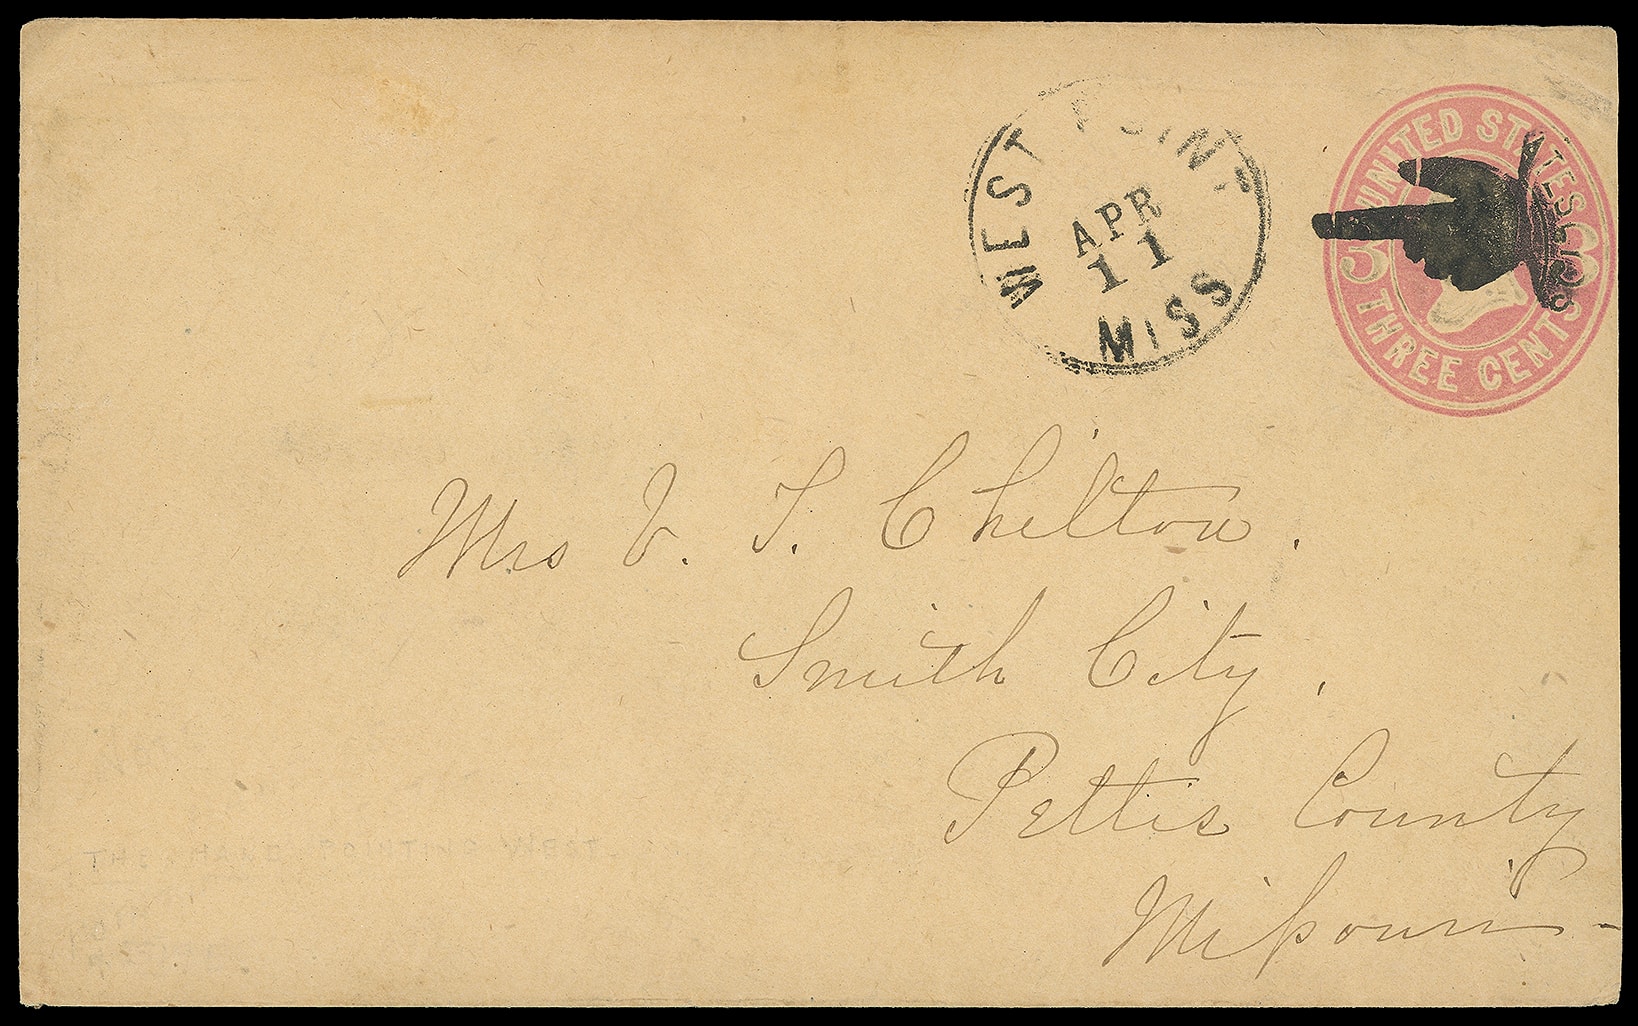 WEST POINT
APR
11
MISS
UNITED STATES
3 3
THREE CENTS
Mrs V. T. Chilton.
Smith City,
Pettis County
Missouri